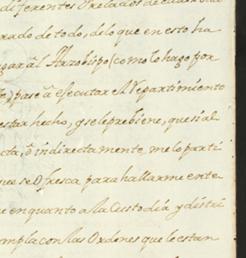 diferentes Prelados de
rado de todo, de lo que en esto ha
gara âl Arzobispo (como lo hago por
te) pase â efecutar el Repartimiento
estar hecho, y se le prebiene, que si al
cta, ô indirectamente, me lo parti
que se Ofresca para hallarme ente
e en quanto a la Custodia, y distri
umpla con las Ordenes que le estan